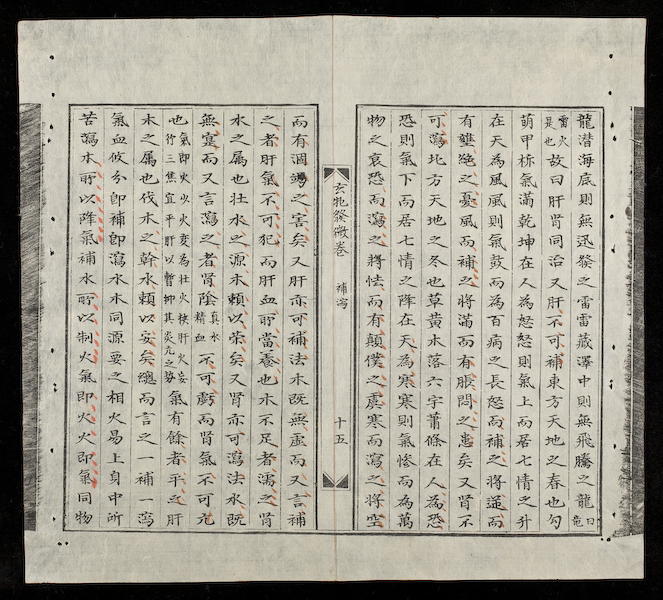 龍潛海底則無迅發之雷雷藏澤中則無飛騰之龍曰竜
雷火是也故曰肝腎同治又肝不可補東方天地之春也勾
萌甲柝氣滿乾坤在人為怒怒則氣上而居七情之升
在天為風風則氣鼓而為百病之長怒而補之將逆而
有壅絕之憂風而補之將滿而有脹悶之患矣又腎不
可瀉北方天地之冬也草黃木落六宇蕭條在人為恐
恐則氣下而居七情之降在天為寒寒則氣慘而為萬
物之衰恐而瀉之將怯而有顛僕之虞寒而瀉之將空
玄牝發微卷 補瀉 十五
而有涸竭之害矣又肝亦可補法木既無虛而又言補
之者肝氣不可犯而肝血所當養也水不足者濡之腎
水之屬也壯水之源木賴以榮矣又腎亦可瀉法水既
無實而又言瀉之者腎陰真水精血不可虧而腎氣不可亢
也氣即火少火变為壯火挾肝火妄行三焦宜平肝以暫抑其炎亢之勢氣有餘者平之肝
木之屬也伐木之幹水賴以安矣總而言之一補一瀉
氣血攸分即補即瀉水木同源要之相火易上身中所
苦瀉木所以降氣補水所以制火氣即火火即氣同物